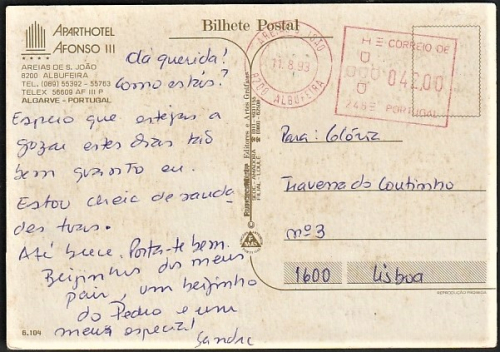 Bilhete Postal
APARTHOTEL
AFONSO III
AREIAS DE S. JOÃO
8200 ALBUFEIRA
TEL. (089) 55392 - 55763
TELEX 56609 AF III P
ALGARVE - PORTUGAL
Olá querida!
Como estás?
Espero que estejas a
gozar estes dias tão
bem quanto eu.
Estou cheia de sauda-
des tuas.
Até breve. Porta-te bem.
Beijinhos dos meus
pais, um beijinho
do Pedro e um
meu especial!
Sandra
6.104
AREIAS S. JOÃO
11.8.93
8200 ALBUFEIRA
CORREIO DE
042,00
PORTUGAL
Para:
Travessa do Coutinho
nº 3
1600 Lisboa
REPRODUÇÃO PROIBIDA